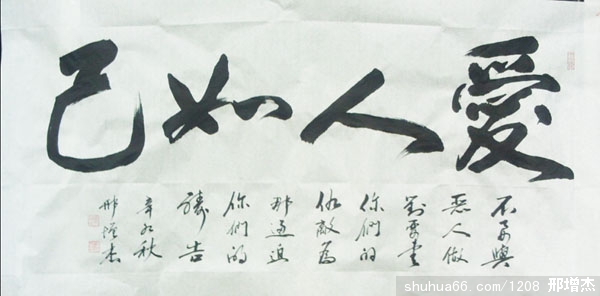 愛人如己
不要與
惡人做
對要愛
你們的
仇敵為
那逼迫
你們的
禱告
辛卯秋
邢增杰
shuhua66.com/1208 邢增杰